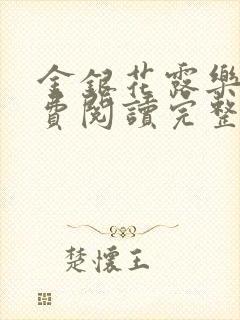 金銀花露樂
費閱讀完整
楚懷王